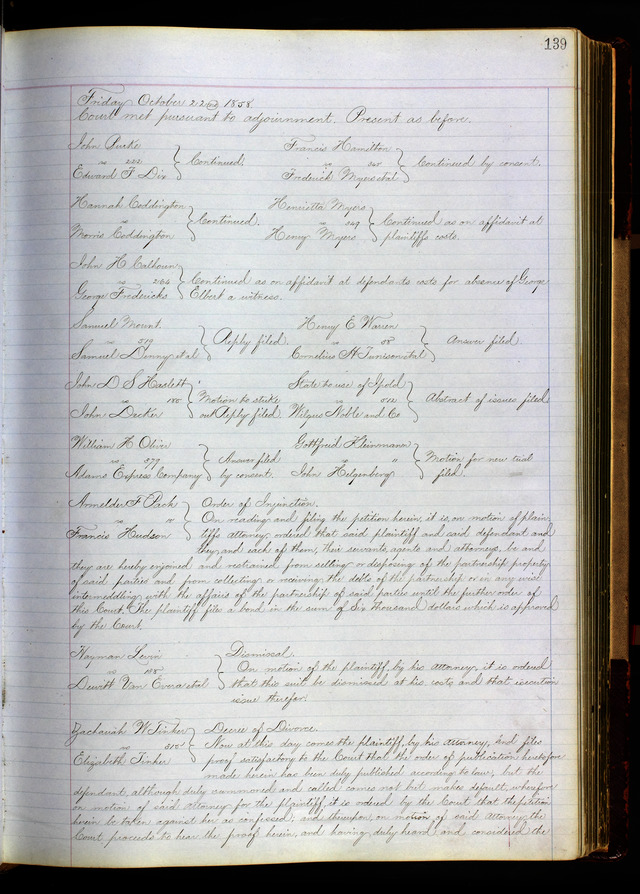 139
Friday October 22nd 1858
Court met pursuant to adjournment. Present as before.
John Burke
vs 222 Continued.
Edward F Dix
Francis Hamilton
vs Continued by consent.
Frederick Myers et al
Hannah Coddington
vs Continued.
Morris Coddington
Henrietta Myers
vs 249 Continued as on affidavit at
Henry Myers plaintiffs costs.
John H Calhoun
vs 266 Continued as on affidavit at defendants costs for absence of George
George Fredericks Elbert a witness.
Samuel Mount
vs 319 Reply filed.
Samuel Denny et al
Henry E Warren
vs 58 Answer filed.
Cornelius H Tunison et al
John D S Haslett
vs 188 Motion to strike
John Decker out Reply filed.
State to use of Spold
vs 512 Abstract of issues filed
Wilgus Noble and Co
William H Oliver
vs 377 Answer filed
Adams Express Company by consent.
Gottfried Kleinmann
vs " Motion for new trial
John Helgenberg filed.
Arnelder F Pack Order of Injunction.
vs On reading and filing the petition herein, it is, on motion of plain-
Francis Hudson tiffs attorney, ordered that said plaintiff and said defendant and
they, and each of them, their servants, agents and attorneys, be and
they are hereby enjoined and restrained from selling or disposing of the partnership property
of said parties and from collecting or receiving the debts of the partnership or in any wise
intermeddling with the affairs of the partnership of said parties until the further order of
this Court. The plaintiff files a bond in the sum of Six thousand dollars which is approved
by the Court.
Hayman Levin Dismissal.
vs 108 On motion of the plaintiff, by his attorney, it is ordered
Dewitt Van Evera et al that this suit be dismissed at his costs and that execution
issue therefor.
Zachariah W Tinker Decree of Divorce.
vs 310 Now at this day comes the plaintiff, by his attorney, and files
Elizabeth Tinker proof satisfactory to the Court that the order of publication heretofore
made herein has been duly published according to law; but the
defendant, although duly summoned and called comes not but makes default; wherefore
on motion of said attorney for the plaintiff, it is ordered by the Court that the petition
herein be taken against her as confessed; and thereupon, on motion of said attorney the
Court proceeds to hear the proof herein, and having duly heard and considered the